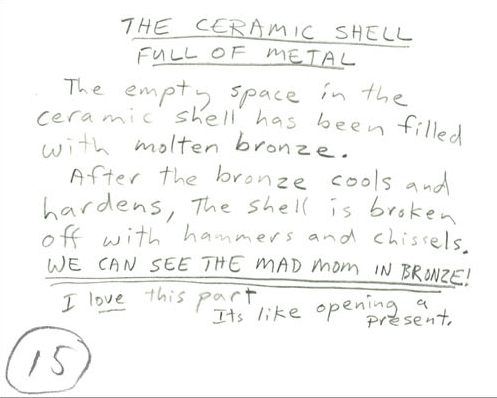 THE CERAMIC SHELL
FULL OF METAL
The empty space in the
ceramic shell has been filled
with molten bronze.
After the bronze cools and
hardens, The shell is broken
off with hammers and chissels.
WE CAN SEE THE MAD MOM IN BRONZE!
I love this part
Its like opening a
present.
15